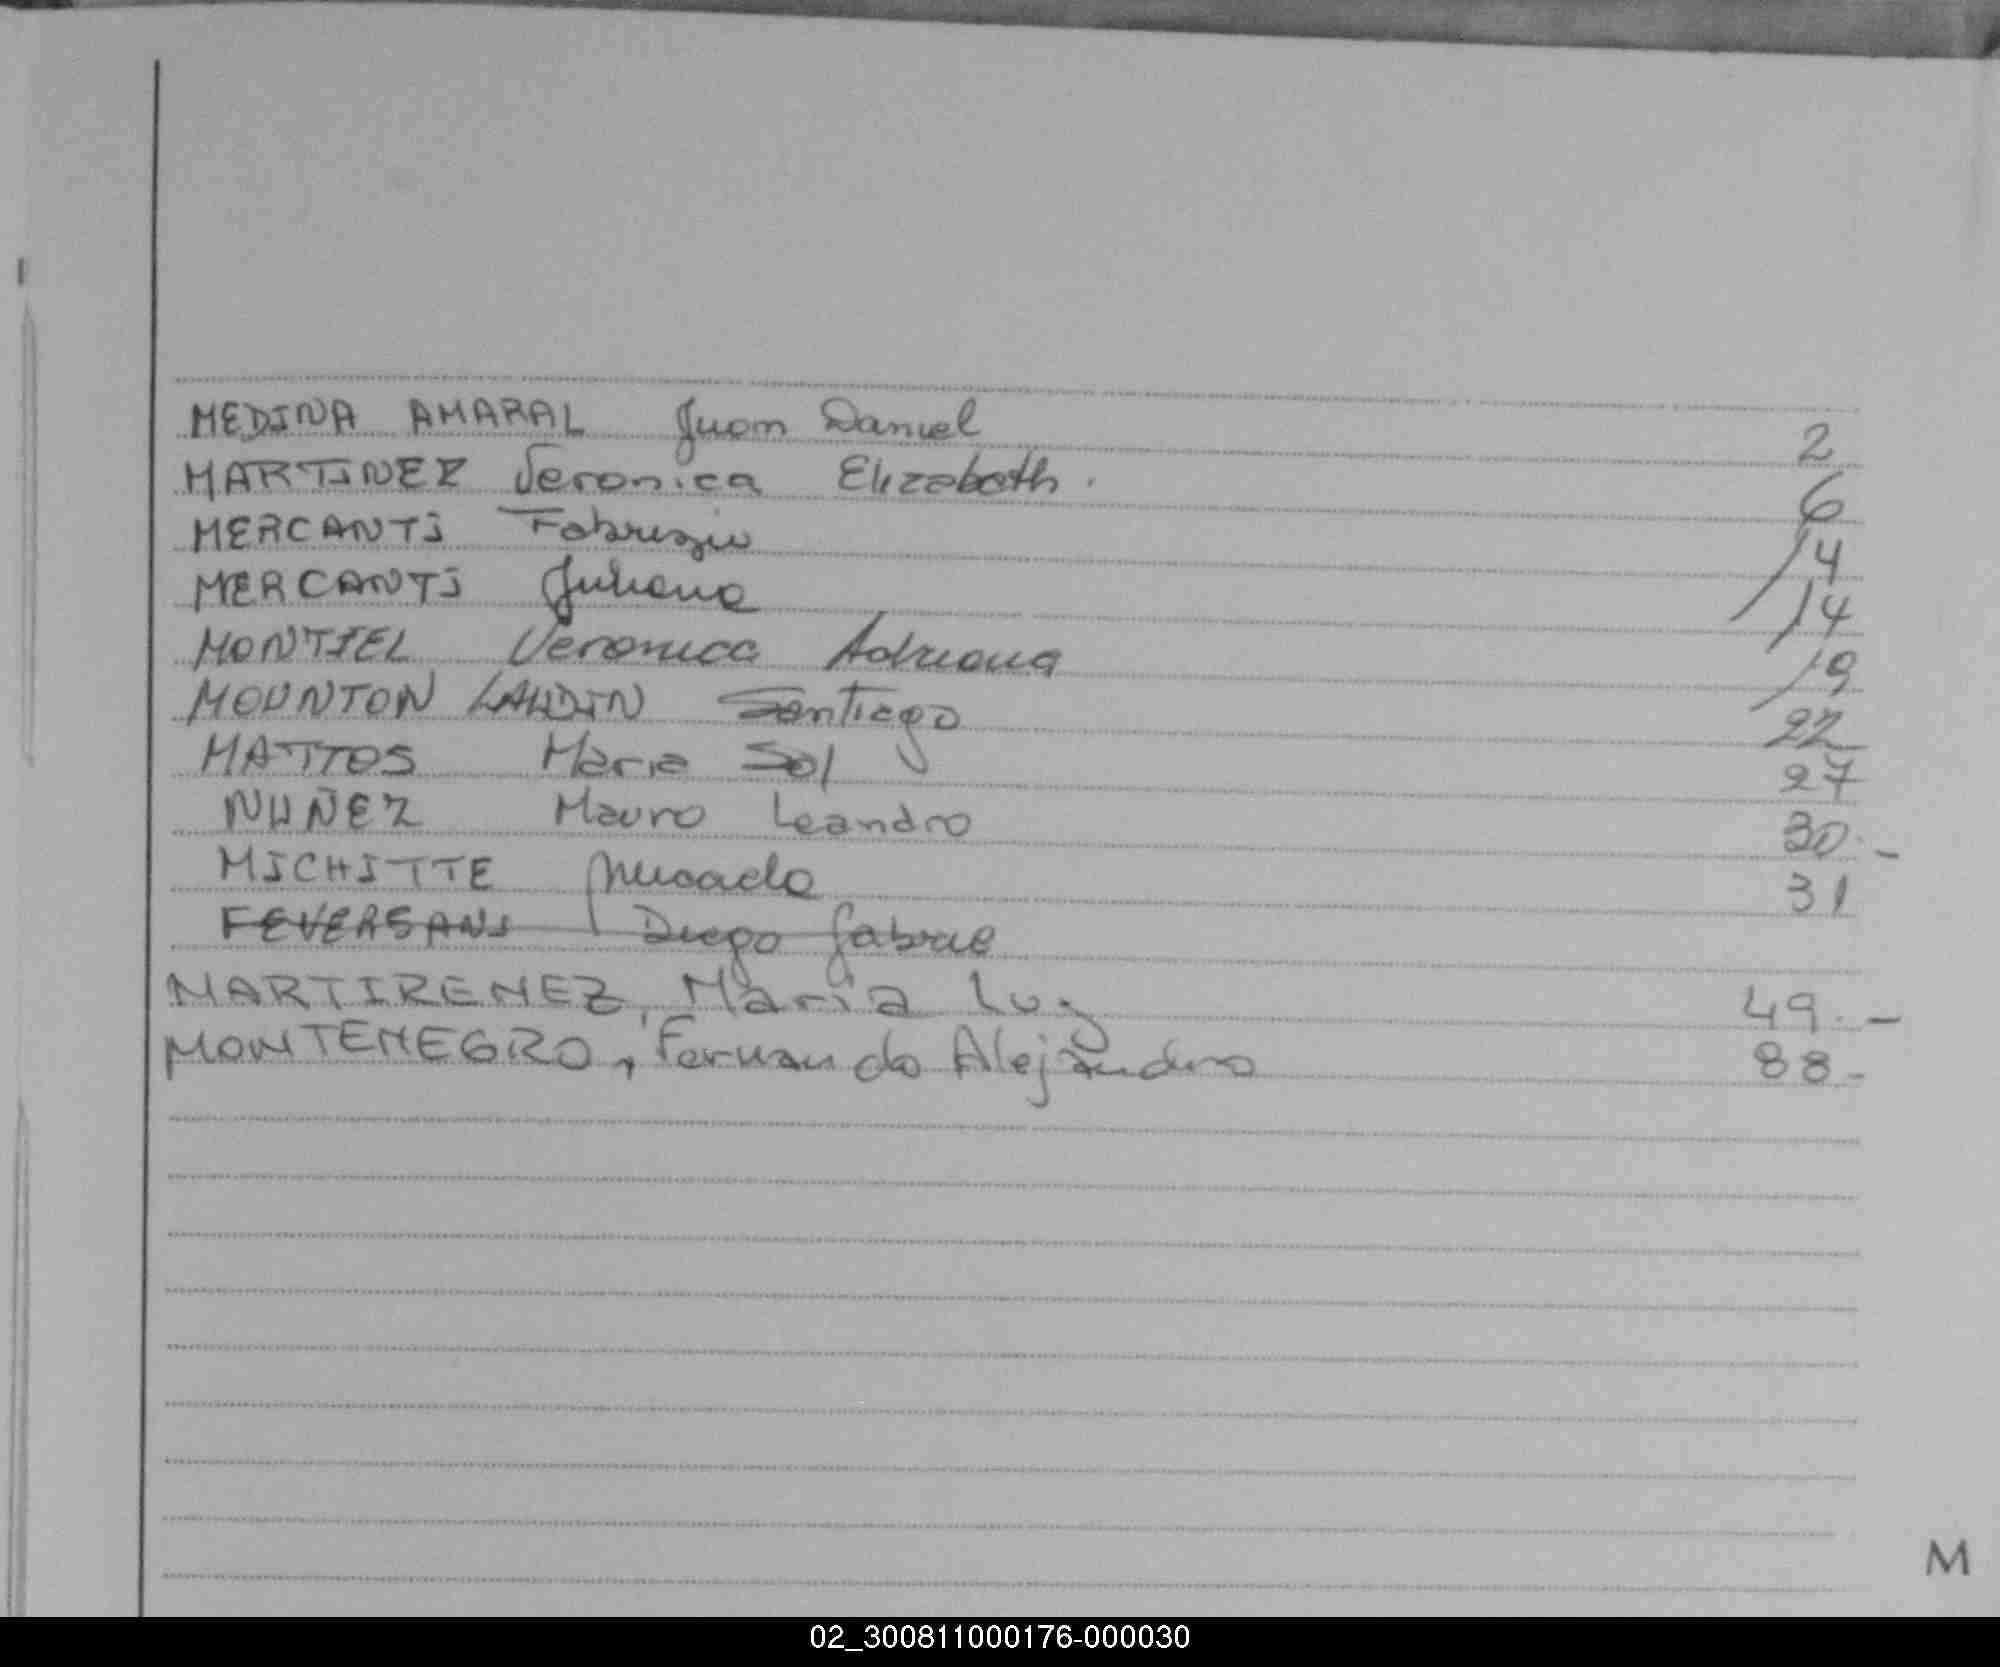 MEDINA AMARAL Juan Daniel 2
MARTINEZ Veronica Elizabeth. 6
MERCANTI Fabrizio 14
MERCANTI Juliana 14
MONTIEL Veronica Adriana 19
MOUNTON Santiago 22
MATTOS Maria Sol 27
NUÑEZ Mauro Leandro 30.-
MICHITTE 31
Diego Gabriel
MARTIRENEZ, Maria Luz 49.-
MONTENEGRO, Fernando Alejandro 88-
M
02_300811000176-000030